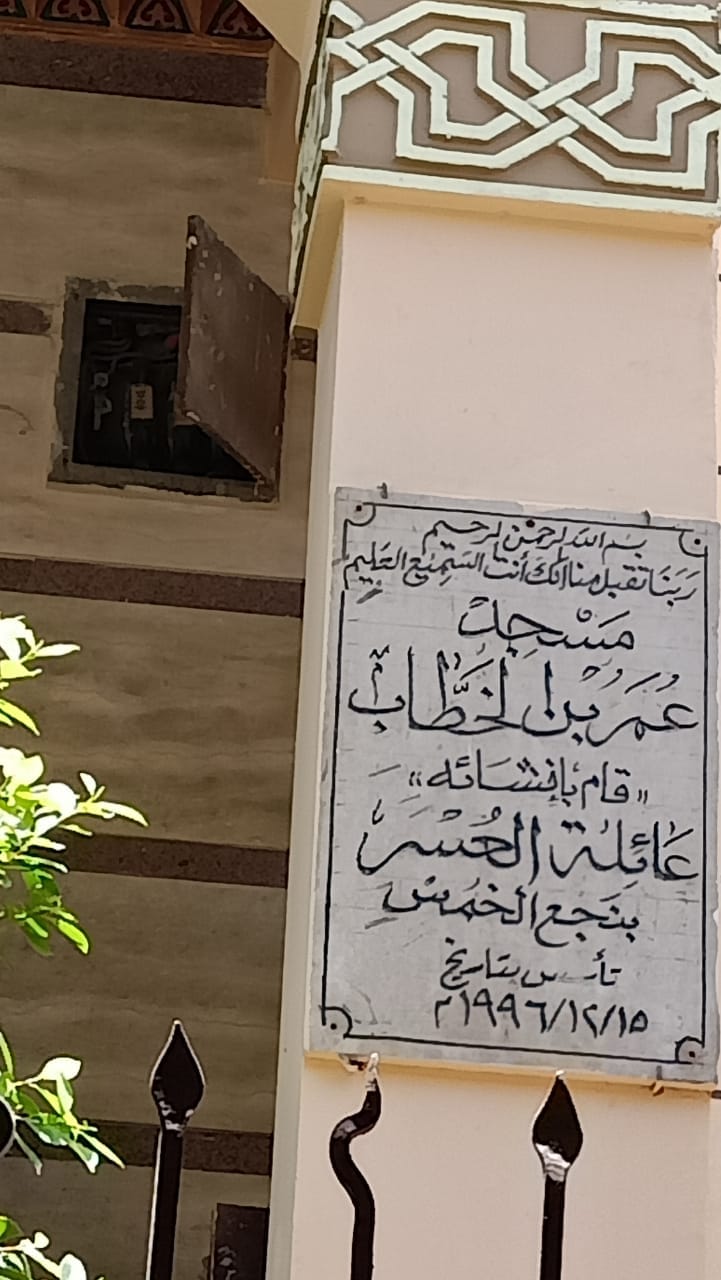 بسم الله الرحمن الرحيم
رَبَنَا تقبل منا انكَ أنت السَمِيْع العَلِيْم
مَسْجِدْ
عُمَرْ بْنُ الخَطَّابْ
"قام بإنشَائه"
عَائِلة العُسَرَ
بنَجع الخَمْسْ
تأسس بتاريخ
١٩٩٦/١٢/١٥م